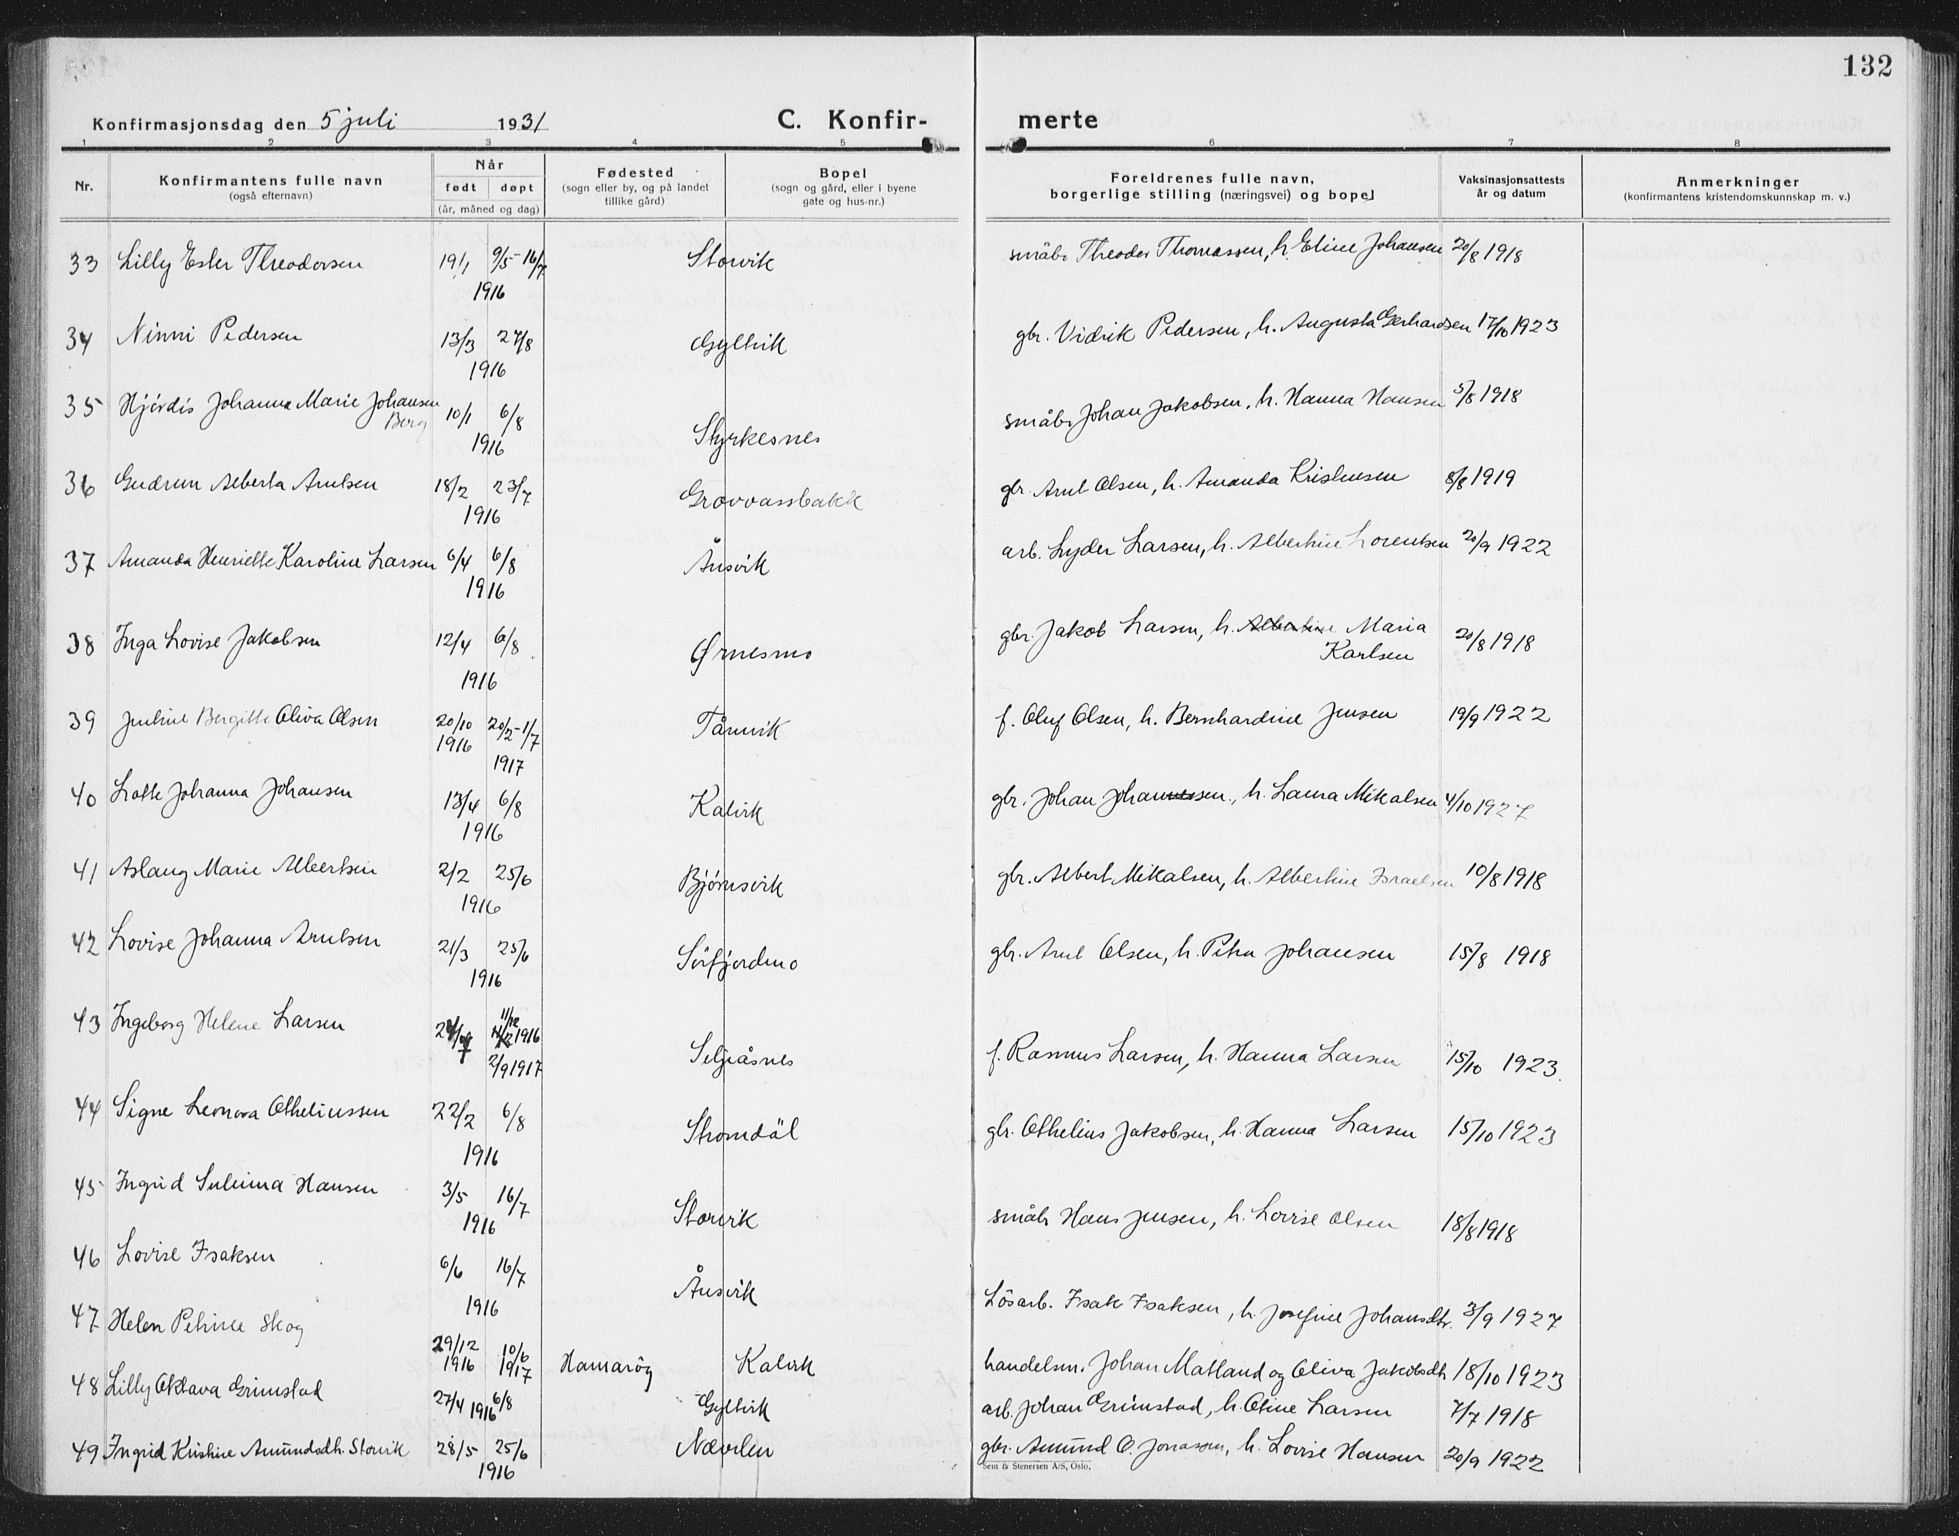 132
Konfirmasjonsdag den 5 juli 1931 C. Konfir- merte
1 2 3 4 5 6 7 8
Nr. Konfirmantens fulle navn (også efternavn) Når født døpt (år, måned og dag) Fødested (sogn eller by, og på landet tillike gård) Bopel (sogn og gård, eller i byene gate og hus-nr.) Foreldrenes fulle navn, borgerlige stilling (næringsvei) og bopel Vaksinasjonsattests år og datum Anmerkninger (konfirmantens kristendomskunnskap m. v.)
33 Lilly Ester Theodorsen 19/1 9/5-16/7 1916 Storvik småbr Theodor Thomassen, h. Eline Johansen 20/8 1918
34 Ninni Pedersen 13/3 27/8 1916 Gyltvik gbr. Vidrik Pedersen, h. Augusta Gerhardsen 17/10 1923
35 Hjördis Johanna Marie Johansen Berg 10/1 6/8 1916 Styrkesnes småbr Johan Jakobsen, h. Hanna Hansen 5/8 1918
36 Gudrun Alberta Arntsen 18/2 23/7 1916 Grovvassbakk gbr. Arnt Olsen, h. Amanda Kristensen 8/8 1919
37 Amanda Henriette Karoline Larsen 6/4 6/8 1916 Ånsvik arb. Lyder Larsen, h. Albertine Lorentsen 20/9 1922
38 Inga Lovise Jakobsen 12/4 6/8 1916 Ørnesmo gbr. Jakob Larsen, h. Albertine Maria Karlsen 20/8 1918
39 Jentine Bergitte Oliva Olsen 20/10 1916 20/2-1/7 1917 Tårnvik f. Oluf Olsen, h. Bernhardine Jensen 19/9 1922
40 Lotte Johanna Johansen 13/4 6/8 1916 Kalvik gbr. Johan Johannessen, h. Laura Mikalsen 4/10 1927
41 Aslaug Marie Albertsen 2/2 25/6 1916 Bjørnsvik gbr. Albert Mikalsen, h. Albertine Israelsen 10/8 1918
42 Lovise Johanna Arntsen 21/3 25/6 1916 Sörfjordmo gbr. Arnt Olsen, h. Petra Johansen 15/8 1918
43 Ingeborg Helene Larsen 24/7 11/12 1916 2/9 1917 Seljeåsnes f. Rasmus Larsen, h. Hanna Larsen 15/10 1923.
44 Signe Leonora Otheliussen 22/2 6/8 1916 Stromdål gbr. Othelius Jakobsen, h. Hanna Larsen 15/10 1923
45 Ingrid Selima Hansen 3/5 16/7 1916 Storvik småbr Hans Jensen, h. Lovise Olsen 18/8 1918
46 Lovise Isaksen 6/6 16/7 1916 Ånsvik Lösarb. Isak Isaksen, h. Josefine Johansdtr. 3/9 1927
47 Helen Petrine Skog 29/12 1916 10/6 1917 Hamarög Kalvik handelsm. Johan Matland og Oliva Jakobsdtr 18/10 1923
48 Lilly Oktava Grimstad 27/4 1916 6/8 Gyltvik arb. Johan Grimstad, h. Otine Larsen 7/7 1918
49 Ingrid Kristine Amundsdtr. Storvik 28/5 25/6 1916 Nævrlen gbr. Amund O. Jonassen, h. Lovise Hansen 20/9 1922
Sem & Stenersen A/S, Oslo.